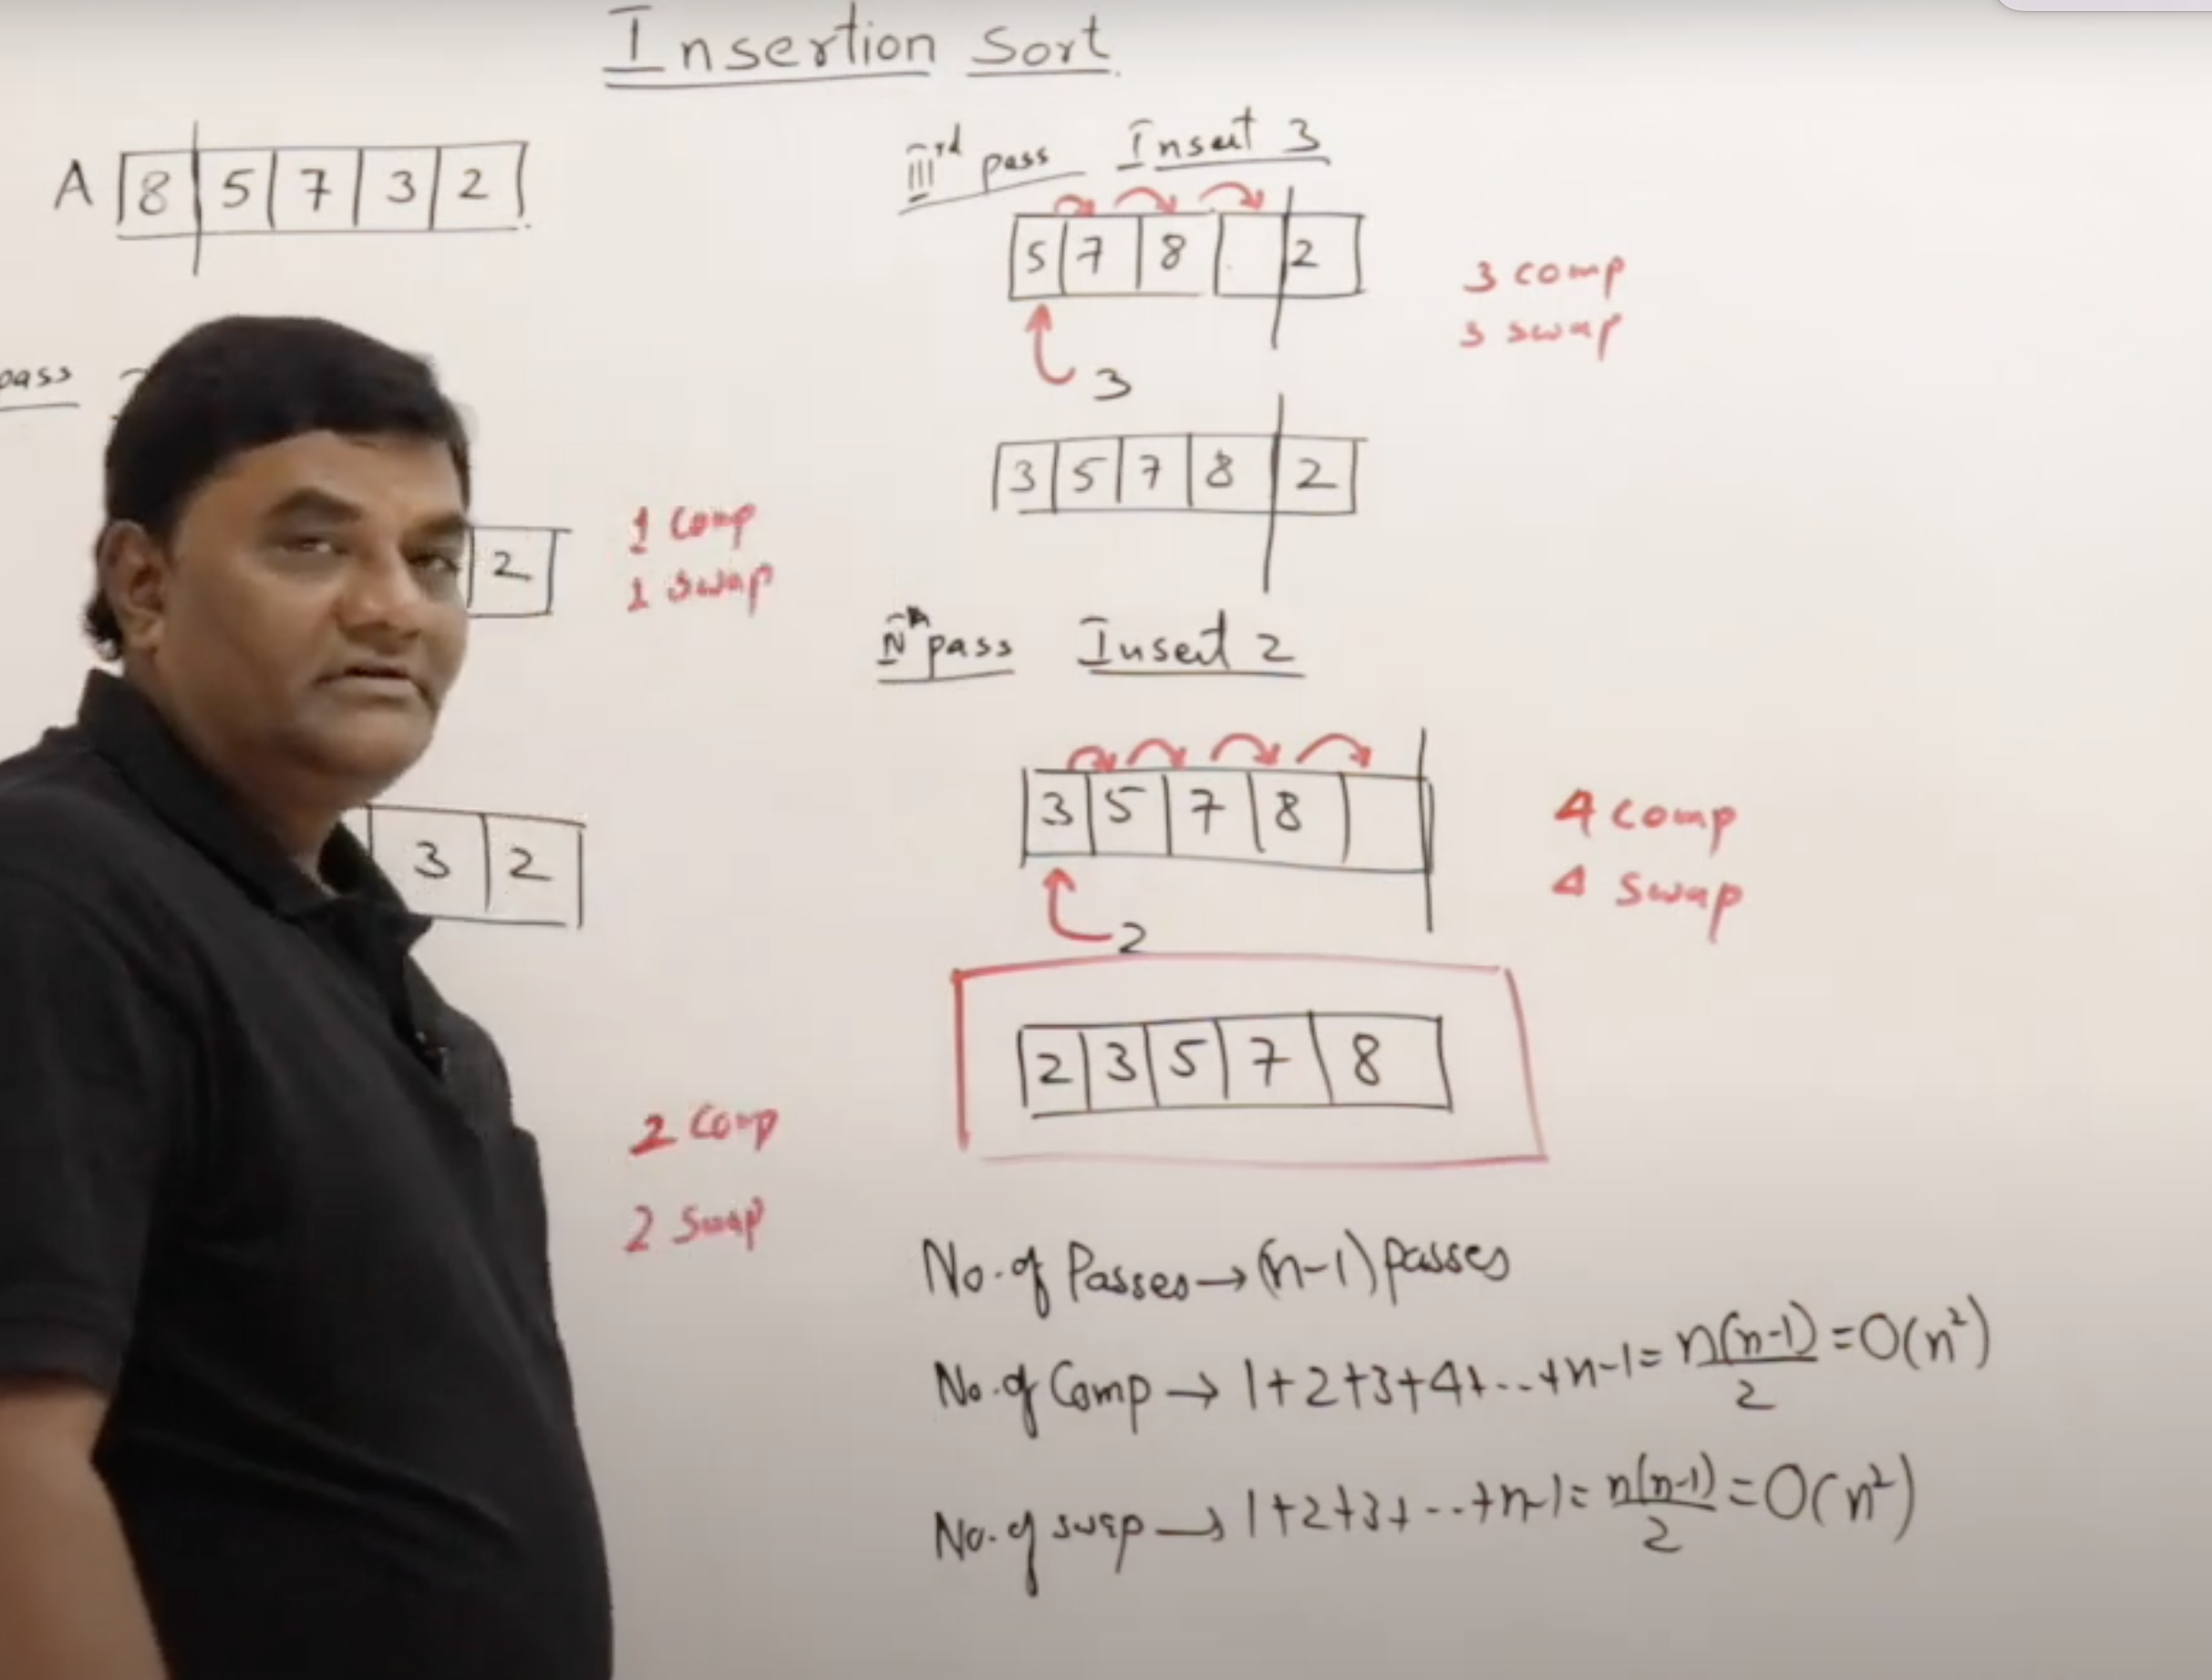 Insertion Sort
A 8 5 7 3 2
pass
2
1 Comp
1 swap
3 2
2 Comp
2 swap
IIIrd pass Insert 3
5 7 8 2
3 comp
3 swap
3
3 5 7 8 2
IVth pass Insert 2
3 5 7 8
4 comp
4 swap
2
2 3 5 7 8
No. of Passes → (n-1) passes
No. of Comp → 1+2+3+4+...+n-1 = n(n-1)/2 = O(n²)
No. of swap → 1+2+3+...+n-1 = n(n-1)/2 = O(n²)